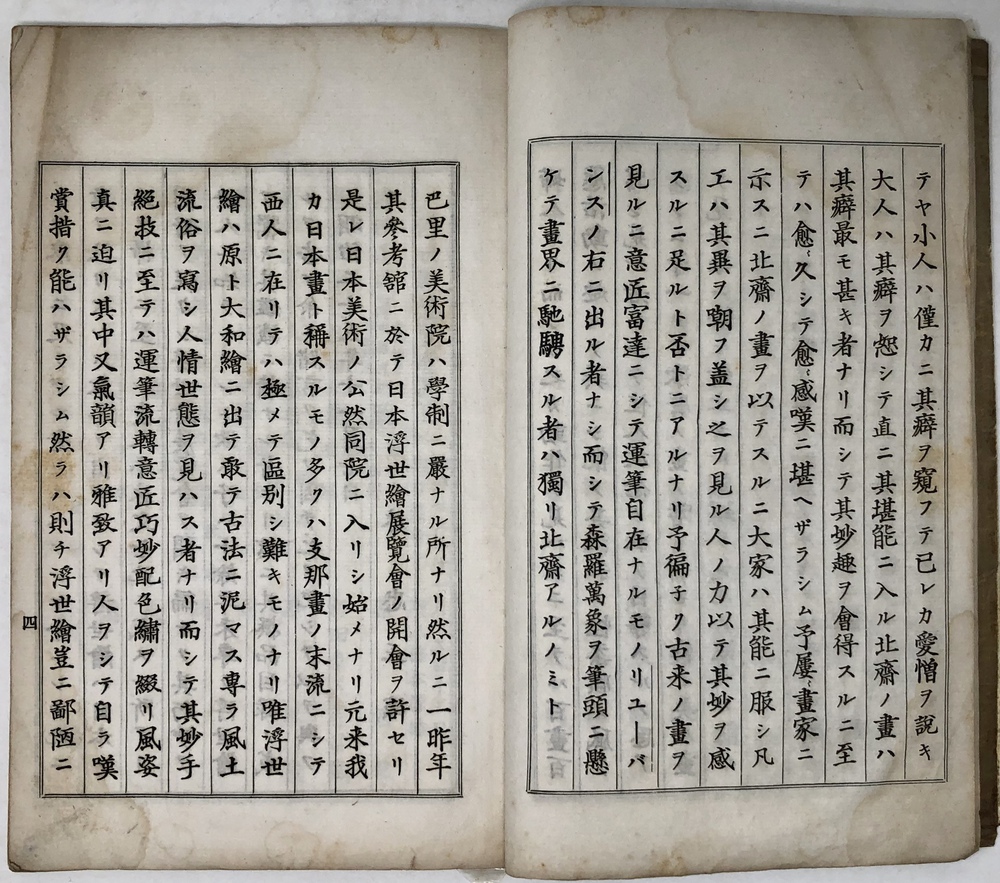 テヤ小人ハ僅カニ其癖ヲ窺フテ已レカ愛憎ヲ說キ
大人ハ其癖ヲ恕シテ直ニ其堪能ニ入ル北齋ノ畫ハ
其癖最モ甚キ者ナリ而シテ其妙趣ヲ會得スルニ至
テハ愈〻久シテ愈〻感嘆ニ堪ヘザラシム予屢〻畫家ニ
示スニ北齋ノ畫ヲ以テスルニ大家ハ其能ニ服シ凡
工ハ其異ヲ嘲フ盖シ之ヲ見ル人ノ力以テ其妙ヲ感
スルニ足ルト否トニアルナリ予徧子ク古来ノ畫ヲ
見ルニ意匠富達ニシテ運筆自在ナルモノリユーバ
ンスノ右ニ出ル者ナシ而シテ森羅萬象ヲ筆頭ニ懸
ケテ畫界ニ馳騁スル者ハ獨リ北齋アルノミト
巴里ノ美術院ハ學制ニ嚴ナル所ナリ然ルニ一昨年
其參考舘ニ於テ日本浮世繪展覽會ノ開會ヲ許セリ
是レ日本美術ノ公然同院ニ入リシ始メナリ元来我
カ日本畫ト稱スルモノ多クハ支那畫ノ末流ニシテ
西人ニ在リテハ極メテ區别シ難キモノナリ唯浮世
繪ハ原ト大和繪ニ出テ敢テ古法ニ泥マス専ラ風土
流俗ヲ寫シ人情世態ヲ見ハス者ナリ而シテ其妙手
絕技ニ至テハ運筆流轉意匠巧妙配色繡ヲ綴リ風姿
真ニ迫リ其中又氣韻アリ雅致アリ人ヲシテ自ラ嘆
賞措ク能ハザラシム然ラハ則チ浮世繪豈ニ鄙陋ニ
四